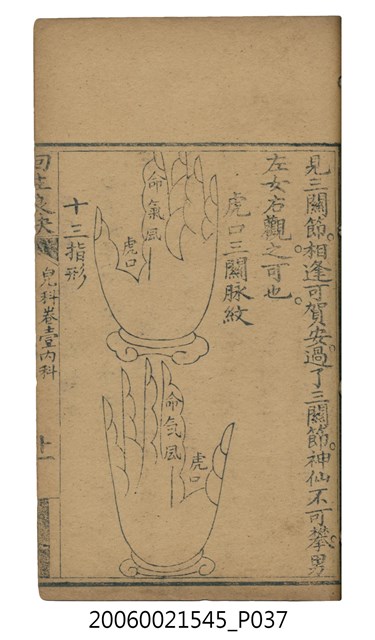 見三關節。相逢可賀安。過了三關節。神仙不可攀。男
左女右觀之可也。
虎口三關脉紋
命氣風
虎口
十三指形
命氣風
虎口
兒科卷壹內科
十一
20060021545_P037